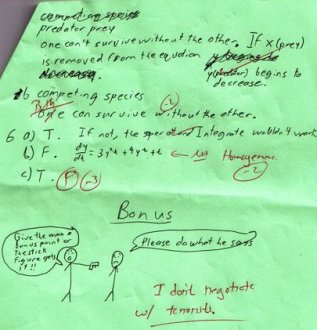 competing species
predator prey
one can't survive without the other. If x(prey)
is removed from the equation y begins to
y(predator) begins to
decrease.
b competing species
Both
one can survive without the other.
-2
6 a) T. If not, the separate and Integrate wouldn't work
b) F. dy/dt = 3y²t + 4y²+t ← not Homogeneous
-2
c) T. F -3
Bonus
Give the man a
bonus point or
the stick
figure gets
it!!
Please do what he says
I don't negotiate
w/ terrorists.